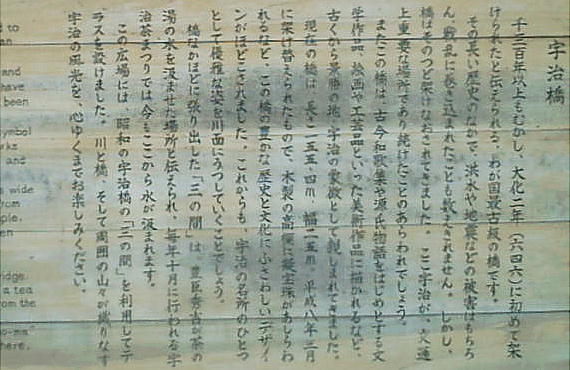 宇治橋
千三百年以上もむかし、大化二年(六四六)に初めて架
けられたと伝えられる、わが国最古級の橋です。
その長い歴史のなかで、洪水や地震などの被害はもちろ
ん、戦乱に巻き込まれたことも数えきれません。しかし、
橋はそのつど架けなおされてきました。ここ宇治が、交通
上重要な場所であり続けたことのあらわれでしょう。
またこの橋は、古今和歌集や源氏物語をはじめとする文
学作品、絵画や工芸品といった美術作品に描かれるなど、
古くから景勝の地、宇治の象徴として親しまれてきました。
現在の橋は、長さ一五五・四m、幅二五m。平成八年三月
に架け替えられたもので、木製の高欄に擬宝珠があしらわ
れるなど、この橋の豊かな歴史と文化にふさわしいデザイ
ンがほどこされました。これからも、宇治の名所のひとつ
として優雅な姿を川面にうつしていくことでしょう。
橋なかほどに張り出した「三の間」は、豊臣秀吉が茶の
湯の水を汲ませた場所と伝えられ、毎年十月に行われる宇
治茶まつりでは今もここから水が汲まれます。
この広場には、昭和の宇治橋の「三の間」を利用してテ
ラスを設けました。川と橋、そして周囲の山々が織りなす
宇治の風光を、心ゆくまでお楽しみください。
d to
an
and
have
been
symbol
ks
and
wide
from
ple.
en
ridge.
a tea
om the
no-ma"
here.